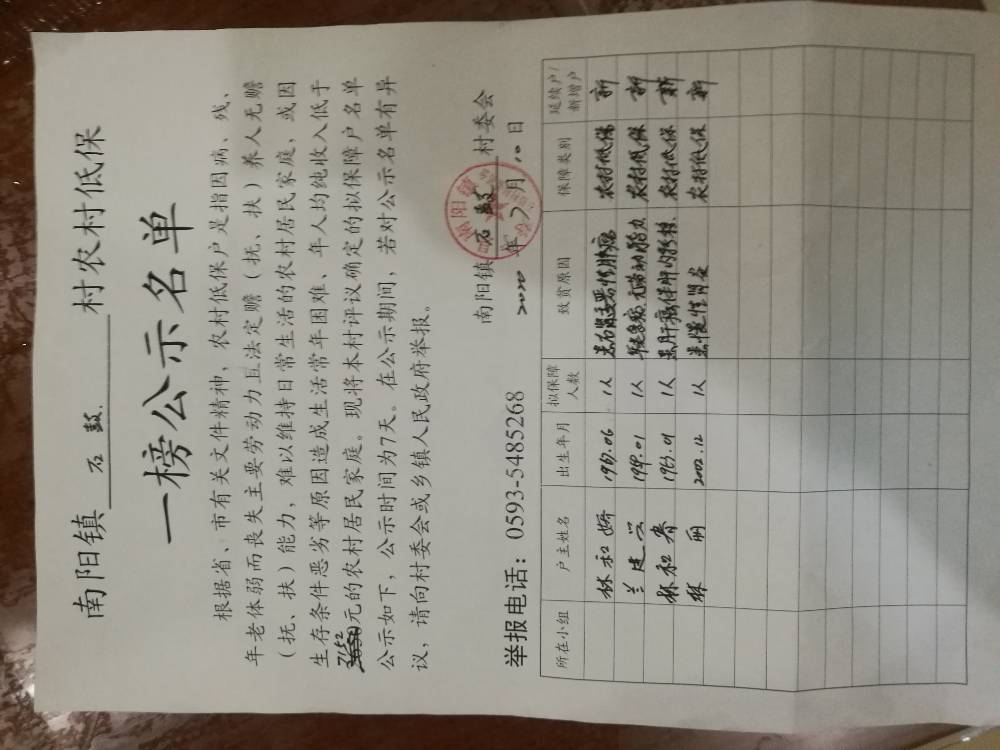 南阳镇 石鼓 村农村低保
一榜公示名单
根据省、市有关文件精神，农村低保户是指因病、残、
年老体弱而丧失主要劳动力且法定赡（抚、扶）养人无赡
（抚、扶）能力，难以维持日常生活的农村居民家庭，或因
生存条件恶劣等原因造成生活常年困难、年人均纯收入低于
7152元的农村居民家庭。现将本村评议确定的拟保障户名单
公示如下，公示时间为7天。在公示期间，若对公示名单有异
议，请向村委会或乡镇人民政府举报。
南阳镇 石鼓 村委会
2020 年 7 月 10 日
举报电话：0593-5485268
所在小组 户主姓名 出生年月 拟保障人数 致贫原因 保障类别 延续户/新增户
林和娇 1967.06 1人 患右肾恶性肿瘤 农村低保 新
兰进兴 1人 农村低保 新
林和春 1963.01 1人 患肝癌伴肺内转移 农村低保 新
林丽 2002.12 1人 患慢性肾炎 农村低保 新